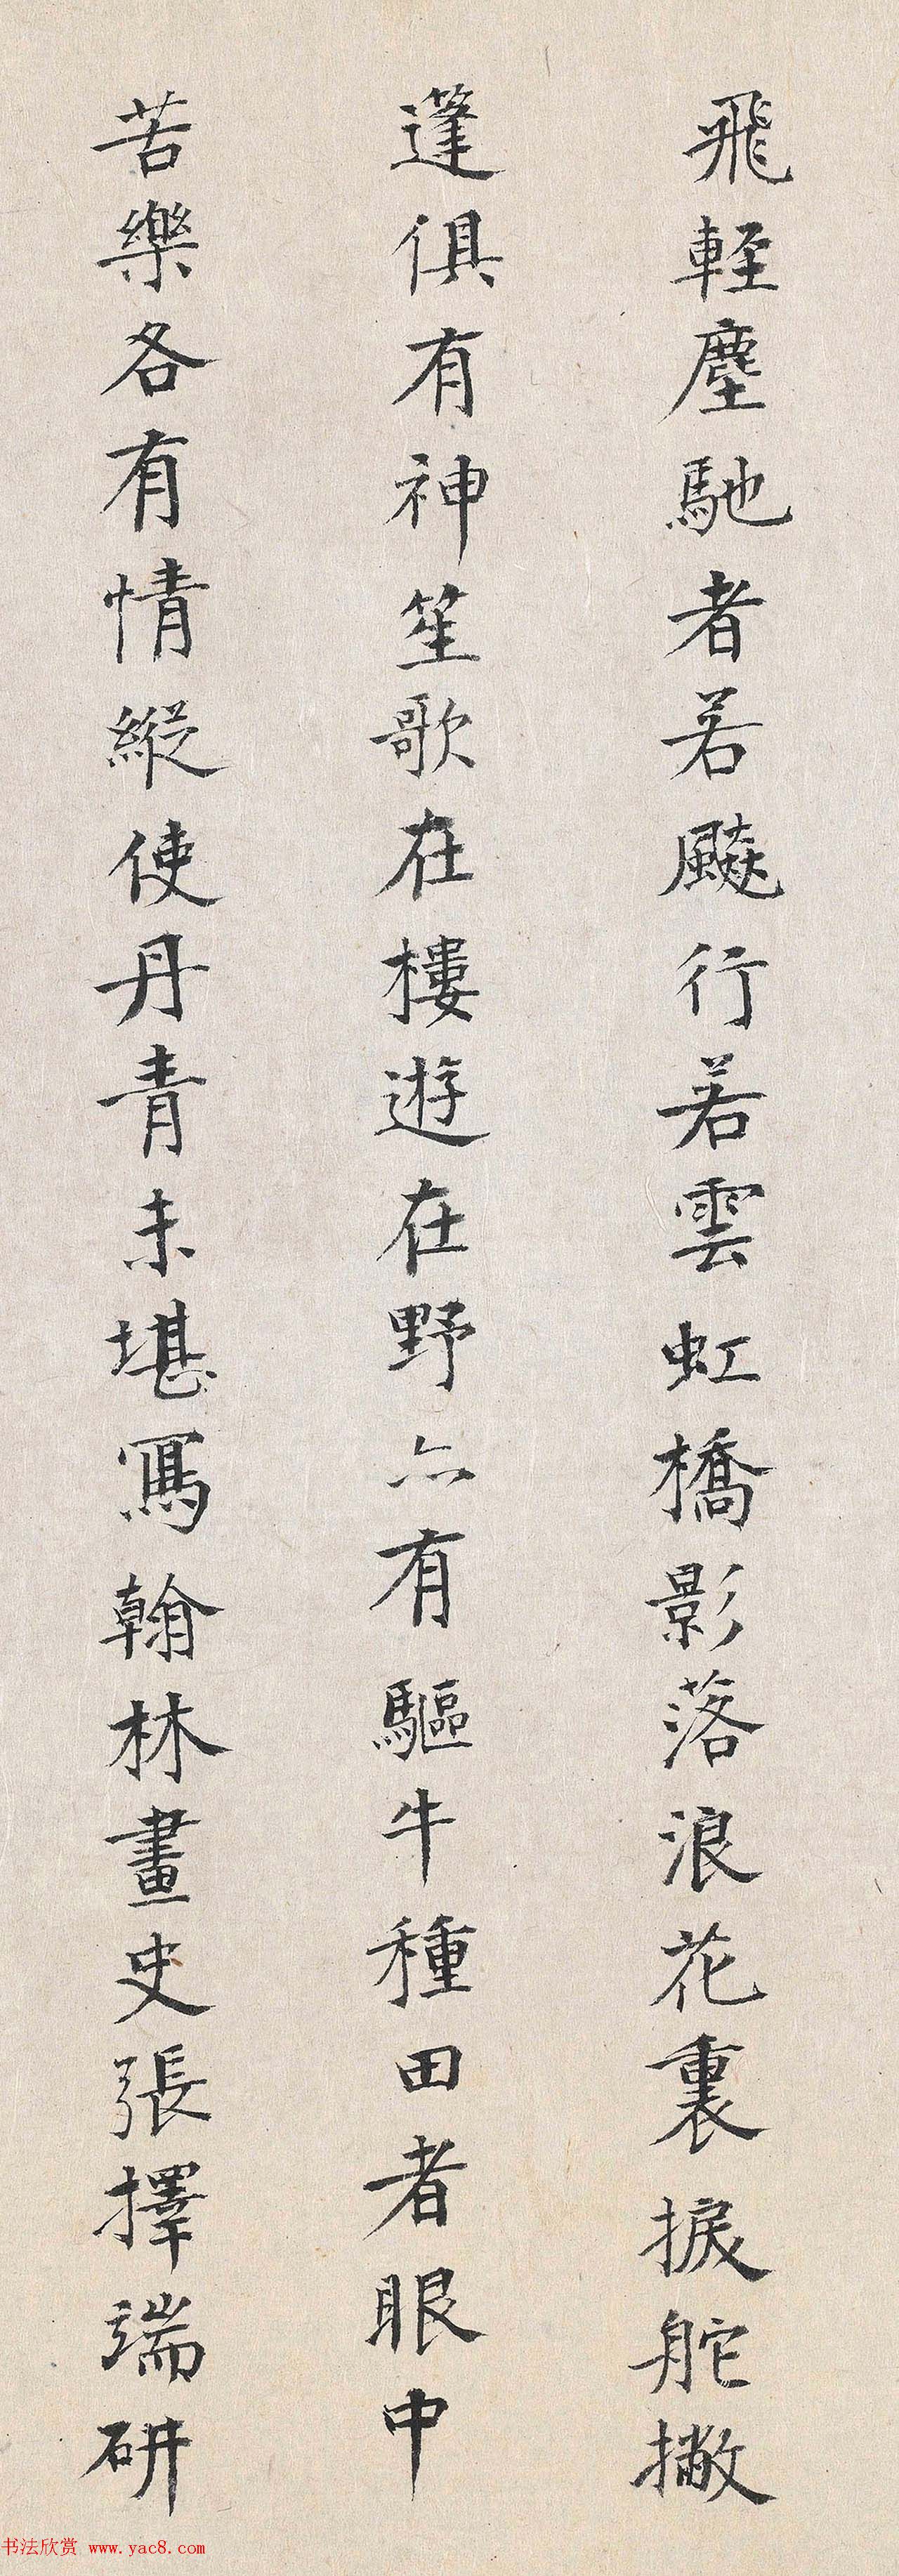 飛輊塵馳者若飈行若雲虹橋影落浪花裏捩舵撇
篷俱有神笙歌在樓遊在野亦有驅牛種田者眼中
苦樂各有情縱使丹青未堪寫翰林畫史張擇端研
书法欣赏 www.yac8.com